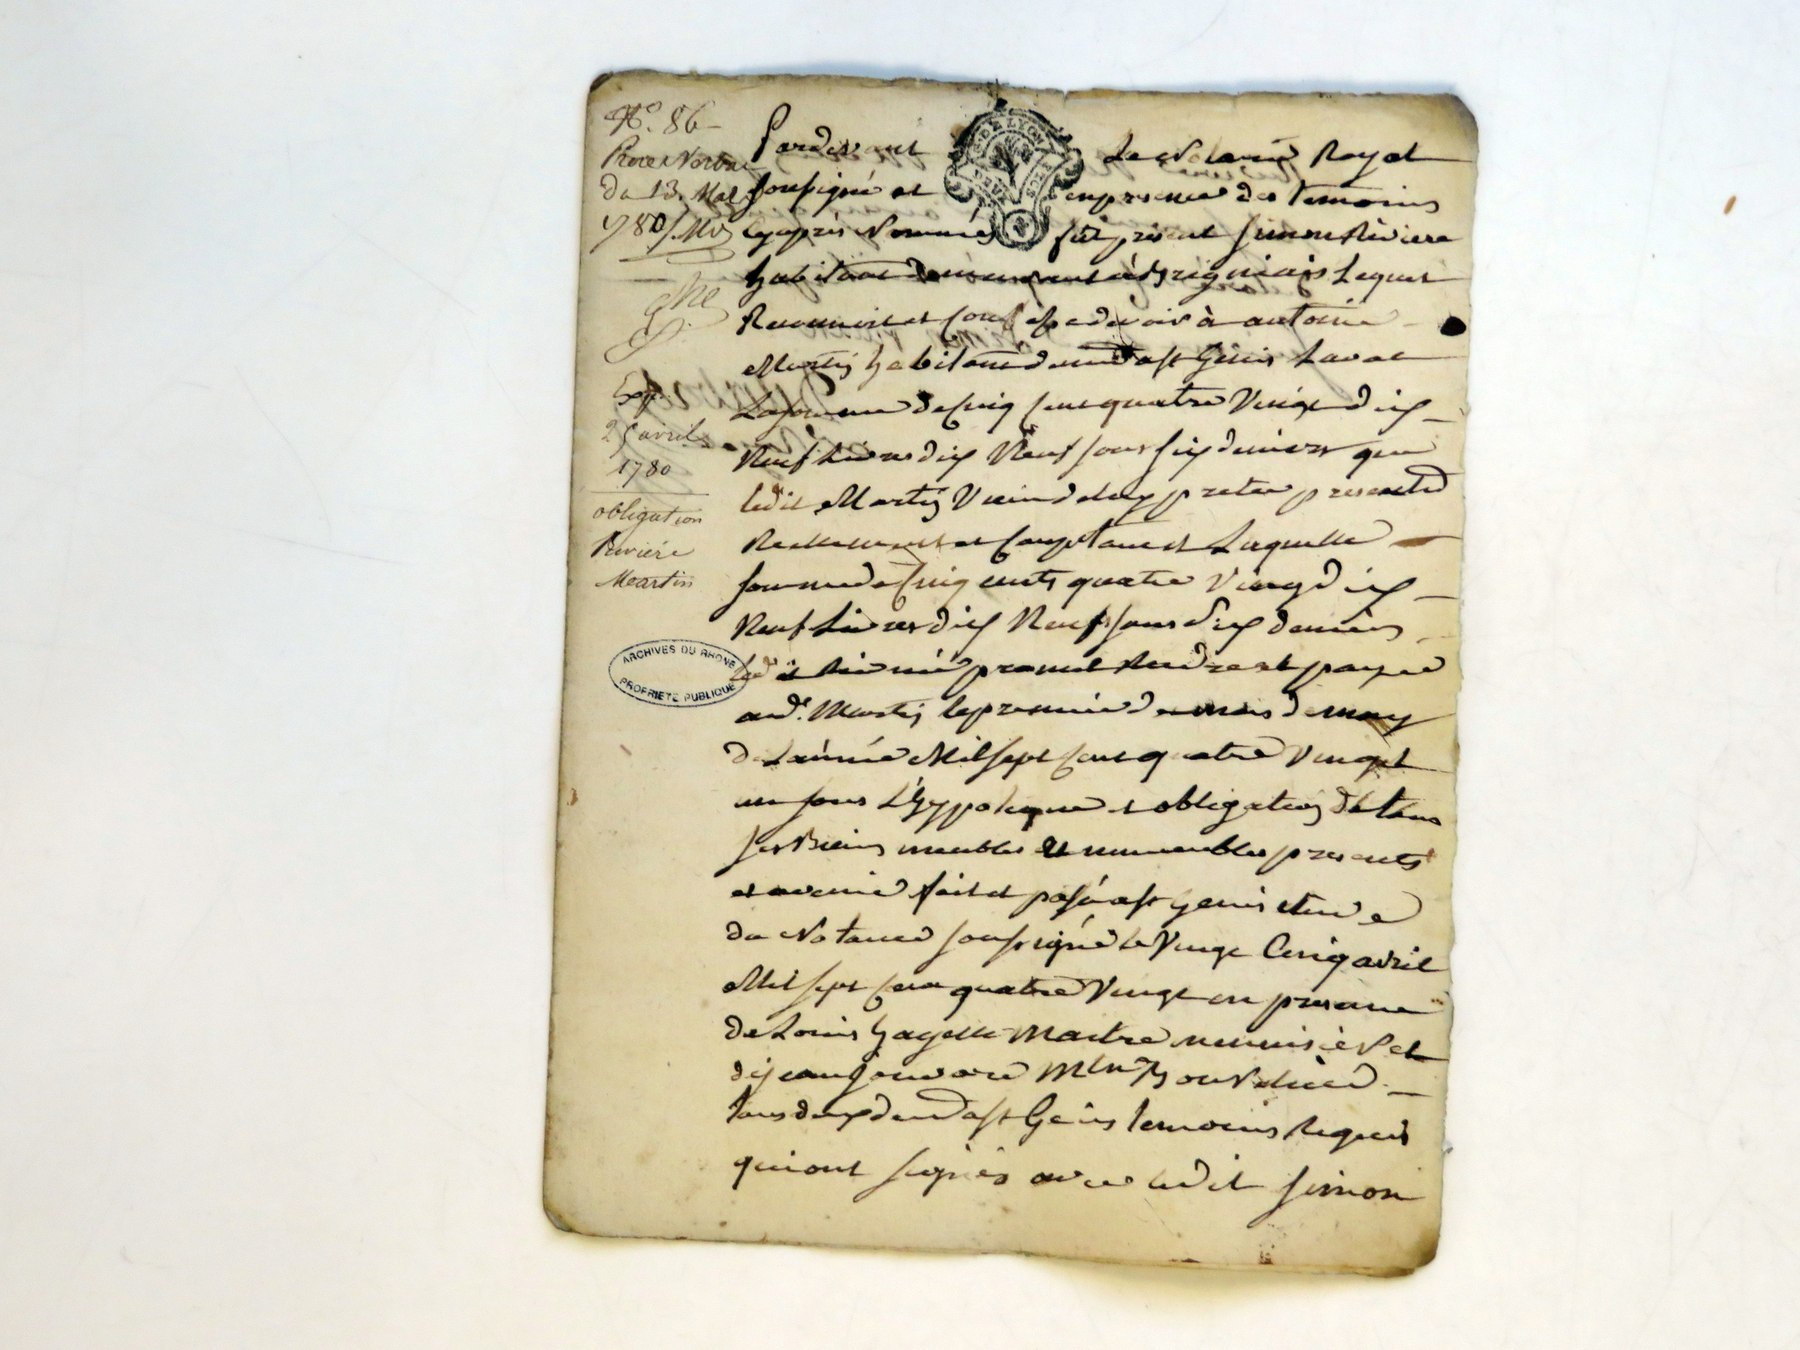 N°. 86
Proces Verbal
du 13. Mai
1780
Exp.
25 avril
1780
obligation
Riviere
Martin
ARCHIVES DU RHONE
PROPRIETE PUBLIQUE
Pardevant Le Notaire Royal
soussigné et en presence des temoins
cy apres Nommés fut present Simon Riviere
habitant demeurant a Brignais Lequel
Reconnoit et confesse devoir à antoine
Martin habitant demt a st Genis Laval
La somme de Cinq cent quatre Vingt dix
Neuf Livres dix Neuf sous six deniers que
ledit Martin Vient de luy preter presentement
Reellement et Comptant Laquelle
somme de Cinq cents quatre Vingt dix
Neuf Livres dix Neuf sous six deniers
Ledit Riviere promet Rendre et payer
aud. Martin le premier du mois de may
de L'année Mil sept cent quatre Vingt
un sous L'hyppoteque et obligation de tous
ses Biens meubles et immeubles presents
et avenir fait et passé a st Genis etude
du Notaire soussigné le Vingt Cinq avril
Mil sept cent quatre Vingt en presence
de Louis hayette Maitre menuisier et
de jean M
tous deux demt a st Genis temoins Requis
qui ont signés avec ledit Simon